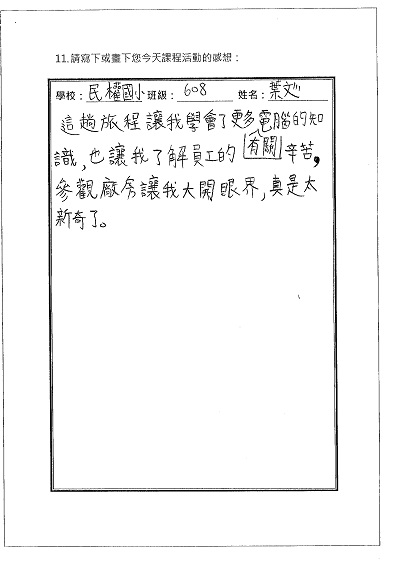 11.請寫下或畫下您今天課程活動的感想：
學校：民權國小 班級：608 姓名：葉文
這趟旅程讓我學會了更多有關電腦的知
識，也讓我了解員工的辛苦，
參觀廠房讓我大開眼界，真是太
新奇了。